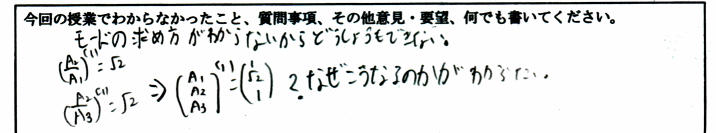 今回の授業でわからなかったこと、質問事項、その他意見・要望、何でも書いてください。
モードの求め方がわからないからどうしようもできない。
(A₂/A₁)⁽¹⁾=√2
(A₂/A₃)⁽¹⁾=√2 ⇒ (A₁ A₂ A₃)⁽¹⁾=(1 √2 1) ? なぜこうなるのかがわからない。